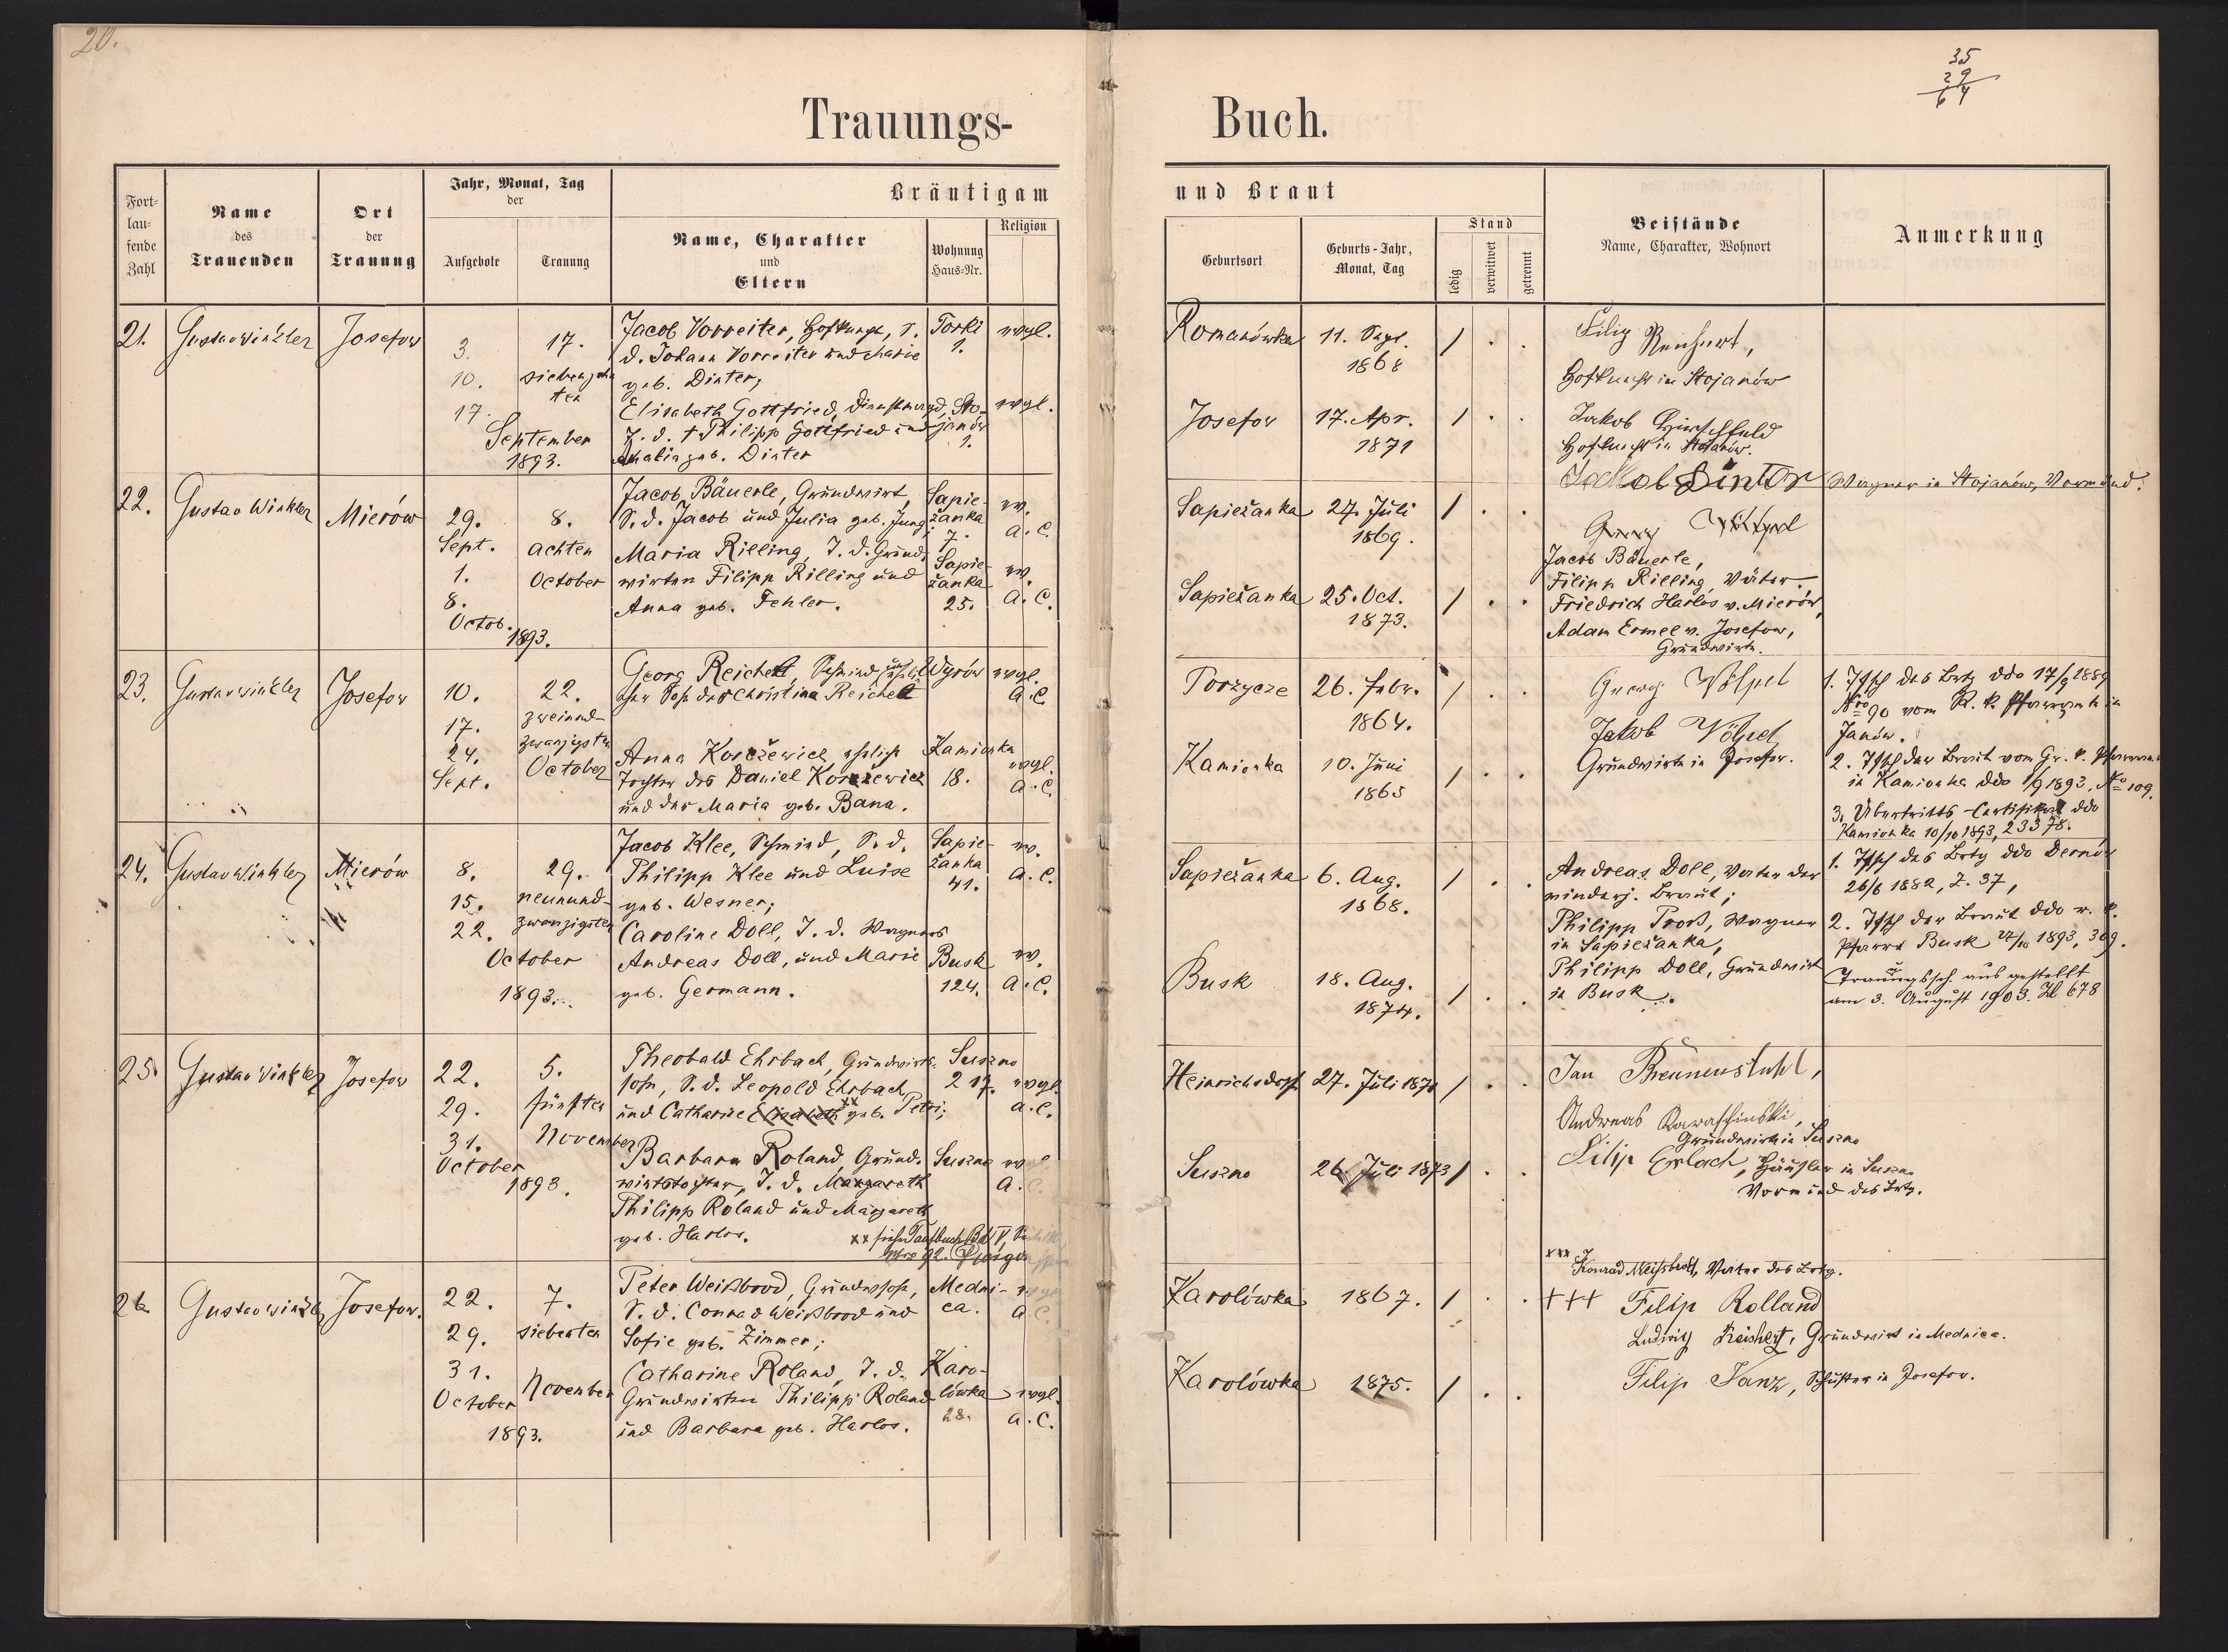 20.
35
29
64
Trauungs-Buch.
Fort-
lau-
fende
Zahl
Name
des
Trauenden
Ort
der
Trauung
Jahr, Monat, Tag
der
Aufgebote
Trauung
Bräutigam
Name, Charakter
und
Eltern
Wohnung
Haus-Nr.
Religion
und Braut
Geburtsort
Geburts-Jahr,
Monat, Tag
Stand
ledig
verwitwet
getrennt
Beistände
Name, Charakter, Wohnort
Anmerkung
21.
Gustav Winkler
Josefow
3.
10.
17.
September
1893.
17.
siebenzehn
ten
Jacob Vorreiter, Hofknecht, S.
d. Johann Vorreiter und Marie
geb. Dinter;
Elisabeth Gottfried, Dienstmagd,
T. d. † Philipp Gottfried und
Amalia geb. Dinter
Torki
1.
Sto-
janów
1.
evgl.
evgl.
Romanówka
11. Sept.
1868
Josefow
17. Apr.
1871
Filip Reichert,
Hofknecht in Stojanów
Jakob Hirschfeld
Hofknecht in Stojanów.
Jackob Dintor Wagner in Stojanów, Vormund.
22.
Gustav Winkler
Mierów
29.
Sept.
1.
8.
Octob.
1893.
8.
achten
October
Jacob Bäuerle, Grundwirt,
S. d. Jacob und Julia geb. Jung;
Maria Rilling, T. d. Grund-
wirten Filipp Rilling und
Anna geb. Fehler.
Sapie-
žanka
7.
Sapie-
žanka
25.
ev.
A. C.
ev.
A. C.
Sapiežanka
27. Juli
1869.
Sapiežanka
25. Oct.
1873.
Georg Völpel
Jacob Bäuerle,
Filipp Rilling, Väter.
Friedrich Harlos v. Mierów,
Adam Ermel v. Josefow,
Grundwirte.
23.
Gustav Winkler
Josefow
10.
17.
24.
Sept.
22.
zweiund-
zwanzigsten
October
Georg Reichel, Schmied,
Sohn der Christina Reichel
Anna Korczewicz, ehelich
Tochter des Daniel Korczewicz
und der Maria geb. Bana.
Wyrów
Kamionka
18.
evgl.
A. C.
evgl.
A. C.
Torzycze
26. Febr.
1864.
Kamionka
10. Juni
1865
Georg Völpel
Jakob Völpel
Grundwirte in Josefow.
1. Tfsch des Brtg ddo 17/9 1889
Nro 90 vom R. k. Pfarramte in
Janów.
2. Tfsch der Braut vom Gr. k. Pfarramt
in Kamionka ddo 1/9 1893, No 109.
3. Übertritts-Certifikat ddo
Kamionka 10/10 1893, 23378.
24.
Gustav Winkler
Mierów
8.
15.
22.
October
1893.
29.
neunund-
zwanzigsten
Jacob Klee, Schmied, S. d.
Philipp Klee und Luise
geb. Wesner;
Caroline Doll, T. d. Wagners
Andreas Doll, und Marie
geb. Germann.
Sapie-
žanka
41.
Busk
124.
ev.
A. C.
ev.
A. C.
Sapiežanka
6. Aug.
1868.
Busk
18. Aug.
1874.
Andreas Doll, Vater der
minderj. Braut;
Philipp Proß, Wagner
in Sapiežanka,
Philipp Doll, Grundwirt
in Busk.
1. Tfsch des Brtg ddo Dernów
26/6 1882, Z. 37,
2. Tfsch der Braut ddo r. k.
Pfarre Busk 27/10 1893, 309.
Trauungssch. ausgestellt
am 3. August 1903. Zl 678
25.
Gustav Winkler
Josefow
22.
29.
31.
October
1893.
5.
fünften
November
Theobald Ehrbach, Grundwirts-
sohn, S. d. Leopold Ehrbach
und Catharine Elisabeth xx geb. Petri;
Barbara Roland, Grund-
wirtstochter, T. d. Margareth
Philipp Roland und Margareth
geb. Harlos.
xx siehe Taufbuch Bd V,
Nro 92.
Suszno
217.
Suszno
evgl.
A. C.
evgl.
A. C.
Heinrichsdorf
27. Juli 1870
Suszno
26. Juli 1873
Jan Brennenstuhl,
Andreas
Grundwirte in Suszno
Filip Erlach, Häusler in Suszno
Vormund des Brtg.
26.
Gustav Winkler
Josefow.
22.
29.
31.
October
1893.
7.
siebenten
November
Peter Weißbrod, Grundwsohn,
S. d. Conrad Weißbrod und
Sofie geb. Zimmer;
Catharine Roland, T. d.
Grundwirten Philipp Roland
und Barbara geb. Harlos.
Medni-
ca.
Karo-
lówka
28.
evgl.
A. C.
evgl.
A. C.
Karolówka
1867.
Karolówka
1875.
xxx Konrad Weißbrod, Vater des Brtg.
+++ Filip Rolland
Ludwig Reichert, Grundwirt in Mednica.
Filip Janz, Schuster in Josefow.